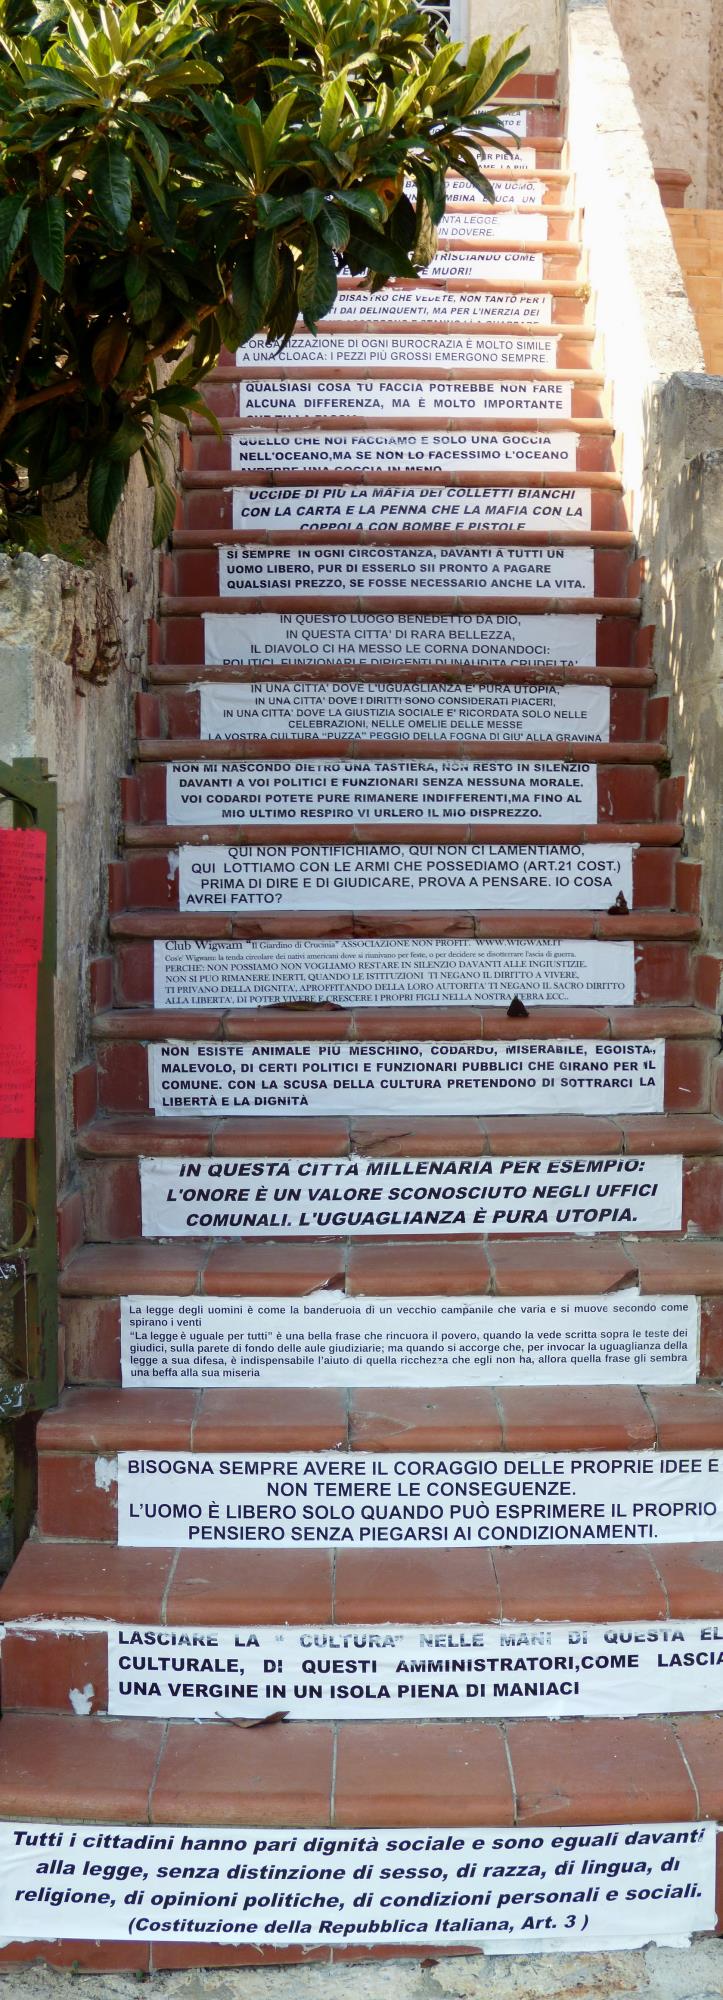 PER PIETÀ,
UN UOMO,
UN
LEGGE,
UN DOVERE.
STRISCIANDO COME
E MUORI!
DISASTRO CHE VEDETE, NON TANTO PER I
DAI DELINQUENTI, MA PER L'INERZIA DEI
L'ORGANIZZAZIONE DI OGNI BUROCRAZIA È MOLTO SIMILE
A UNA CLOACA: I PEZZI PIÙ GROSSI EMERGONO SEMPRE.
QUALSIASI COSA TU FACCIA POTREBBE NON FARE
ALCUNA DIFFERENZA, MA È MOLTO IMPORTANTE
CHE TU LA FACCIA
QUELLO CHE NOI FACCIAMO È SOLO UNA GOCCIA
NELL'OCEANO,MA SE NON LO FACESSIMO L'OCEANO
AVREBBE UNA GOCCIA IN MENO
UCCIDE DI PIÙ LA MAFIA DEI COLLETTI BIANCHI
CON LA CARTA E LA PENNA CHE LA MAFIA CON LA
COPPOLA CON BOMBE E PISTOLE
SI SEMPRE IN OGNI CIRCOSTANZA, DAVANTI A TUTTI UN
UOMO LIBERO, PUR DI ESSERLO SII PRONTO A PAGARE
QUALSIASI PREZZO, SE FOSSE NECESSARIO ANCHE LA VITA.
IN QUESTO LUOGO BENEDETTO DA DIO,
IN QUESTA CITTA' DI RARA BELLEZZA,
IL DIAVOLO CI HA MESSO LE CORNA DONANDOCI:
POLITICI, FUNZIONARI E DIRIGENTI DI INAUDITA CRUDELTA'
IN UNA CITTA' DOVE L'UGUAGLIANZA E' PURA UTOPIA,
IN UNA CITTA' DOVE I DIRITTI SONO CONSIDERATI PIACERI,
IN UNA CITTA' DOVE LA GIUSTIZIA SOCIALE E' RICORDATA SOLO NELLE
CELEBRAZIONI, NELLE OMELIE DELLE MESSE
LA VOSTRA CULTURA "PUZZA" PEGGIO DELLA FOGNA DI GIU' ALLA GRAVINA
NON MI NASCONDO DIETRO UNA TASTIERA, NON RESTO IN SILENZIO
DAVANTI A VOI POLITICI E FUNZIONARI SENZA NESSUNA MORALE.
VOI CODARDI POTETE PURE RIMANERE INDIFFERENTI,MA FINO AL
MIO ULTIMO RESPIRO VI URLERO IL MIO DISPREZZO.
QUI NON PONTIFICHIAMO, QUI NON CI LAMENTIAMO,
QUI LOTTIAMO CON LE ARMI CHE POSSEDIAMO (ART.21 COST.)
PRIMA DI DIRE E DI GIUDICARE, PROVA A PENSARE. IO COSA
AVREI FATTO?
Club Wigwam "Il Giardino di Crucinia" ASSOCIAZIONE NON PROFIT. WWW.WIGWAM.IT
Cos'e' Wigwam: la tenda circolare dei nativi americani dove si riunivano per feste, o per decidere se disotterrare l'ascia di guerra.
PERCHE: NON POSSIAMO NON VOGLIAMO RESTARE IN SILENZIO DAVANTI ALLE INGIUSTIZIE.
NON SI PUO RIMANERE INERTI, QUANDO LE ISTITUZIONI TI NEGANO IL DIRITTO A VIVERE,
TI PRIVANO DELLA DIGNITA', APROFITTANDO DELLA LORO AUTORITA' TI NEGANO IL SACRO DIRITTO
ALLA LIBERTA', DI POTER VIVERE E CRESCERE I PROPRI FIGLI NELLA NOSTRA TERRA ECC..
NON ESISTE ANIMALE PIÙ MESCHINO, CODARDO, MISERABILE, EGOISTA,
MALEVOLO, DI CERTI POLITICI E FUNZIONARI PUBBLICI CHE GIRANO PER IL
COMUNE. CON LA SCUSA DELLA CULTURA PRETENDONO DI SOTTRARCI LA
LIBERTÀ E LA DIGNITÀ
IN QUESTA CITTÀ MILLENARIA PER ESEMPIO:
L'ONORE È UN VALORE SCONOSCIUTO NEGLI UFFICI
COMUNALI. L'UGUAGLIANZA È PURA UTOPIA.
La legge degli uomini è come la banderuola di un vecchio campanile che varia e si muove secondo come
spirano i venti
"La legge è uguale per tutti" è una bella frase che rincuora il povero, quando la vede scritta sopra le teste dei
giudici, sulla parete di fondo delle aule giudiziarie; ma quando si accorge che, per invocar la uguaglianza della
legge a sua difesa, è indispensabile l'aiuto di quella ricchezza che egli non ha, allora quella frase gli sembra
una beffa alla sua miseria
BISOGNA SEMPRE AVERE IL CORAGGIO DELLE PROPRIE IDEE E
NON TEMERE LE CONSEGUENZE.
L'UOMO È LIBERO SOLO QUANDO PUÒ ESPRIMERE IL PROPRIO
PENSIERO SENZA PIEGARSI AI CONDIZIONAMENTI.
LASCIARE LA " CULTURA" NELLE MANI DI QUESTA EL
CULTURALE, DI QUESTI AMMINISTRATORI,COME LASCIA
UNA VERGINE IN UN ISOLA PIENA DI MANIACI
Tutti i cittadini hanno pari dignità sociale e sono eguali davanti
alla legge, senza distinzione di sesso, di razza, di lingua, di
religione, di opinioni politiche, di condizioni personali e sociali.
(Costituzione della Repubblica Italiana, Art. 3 )